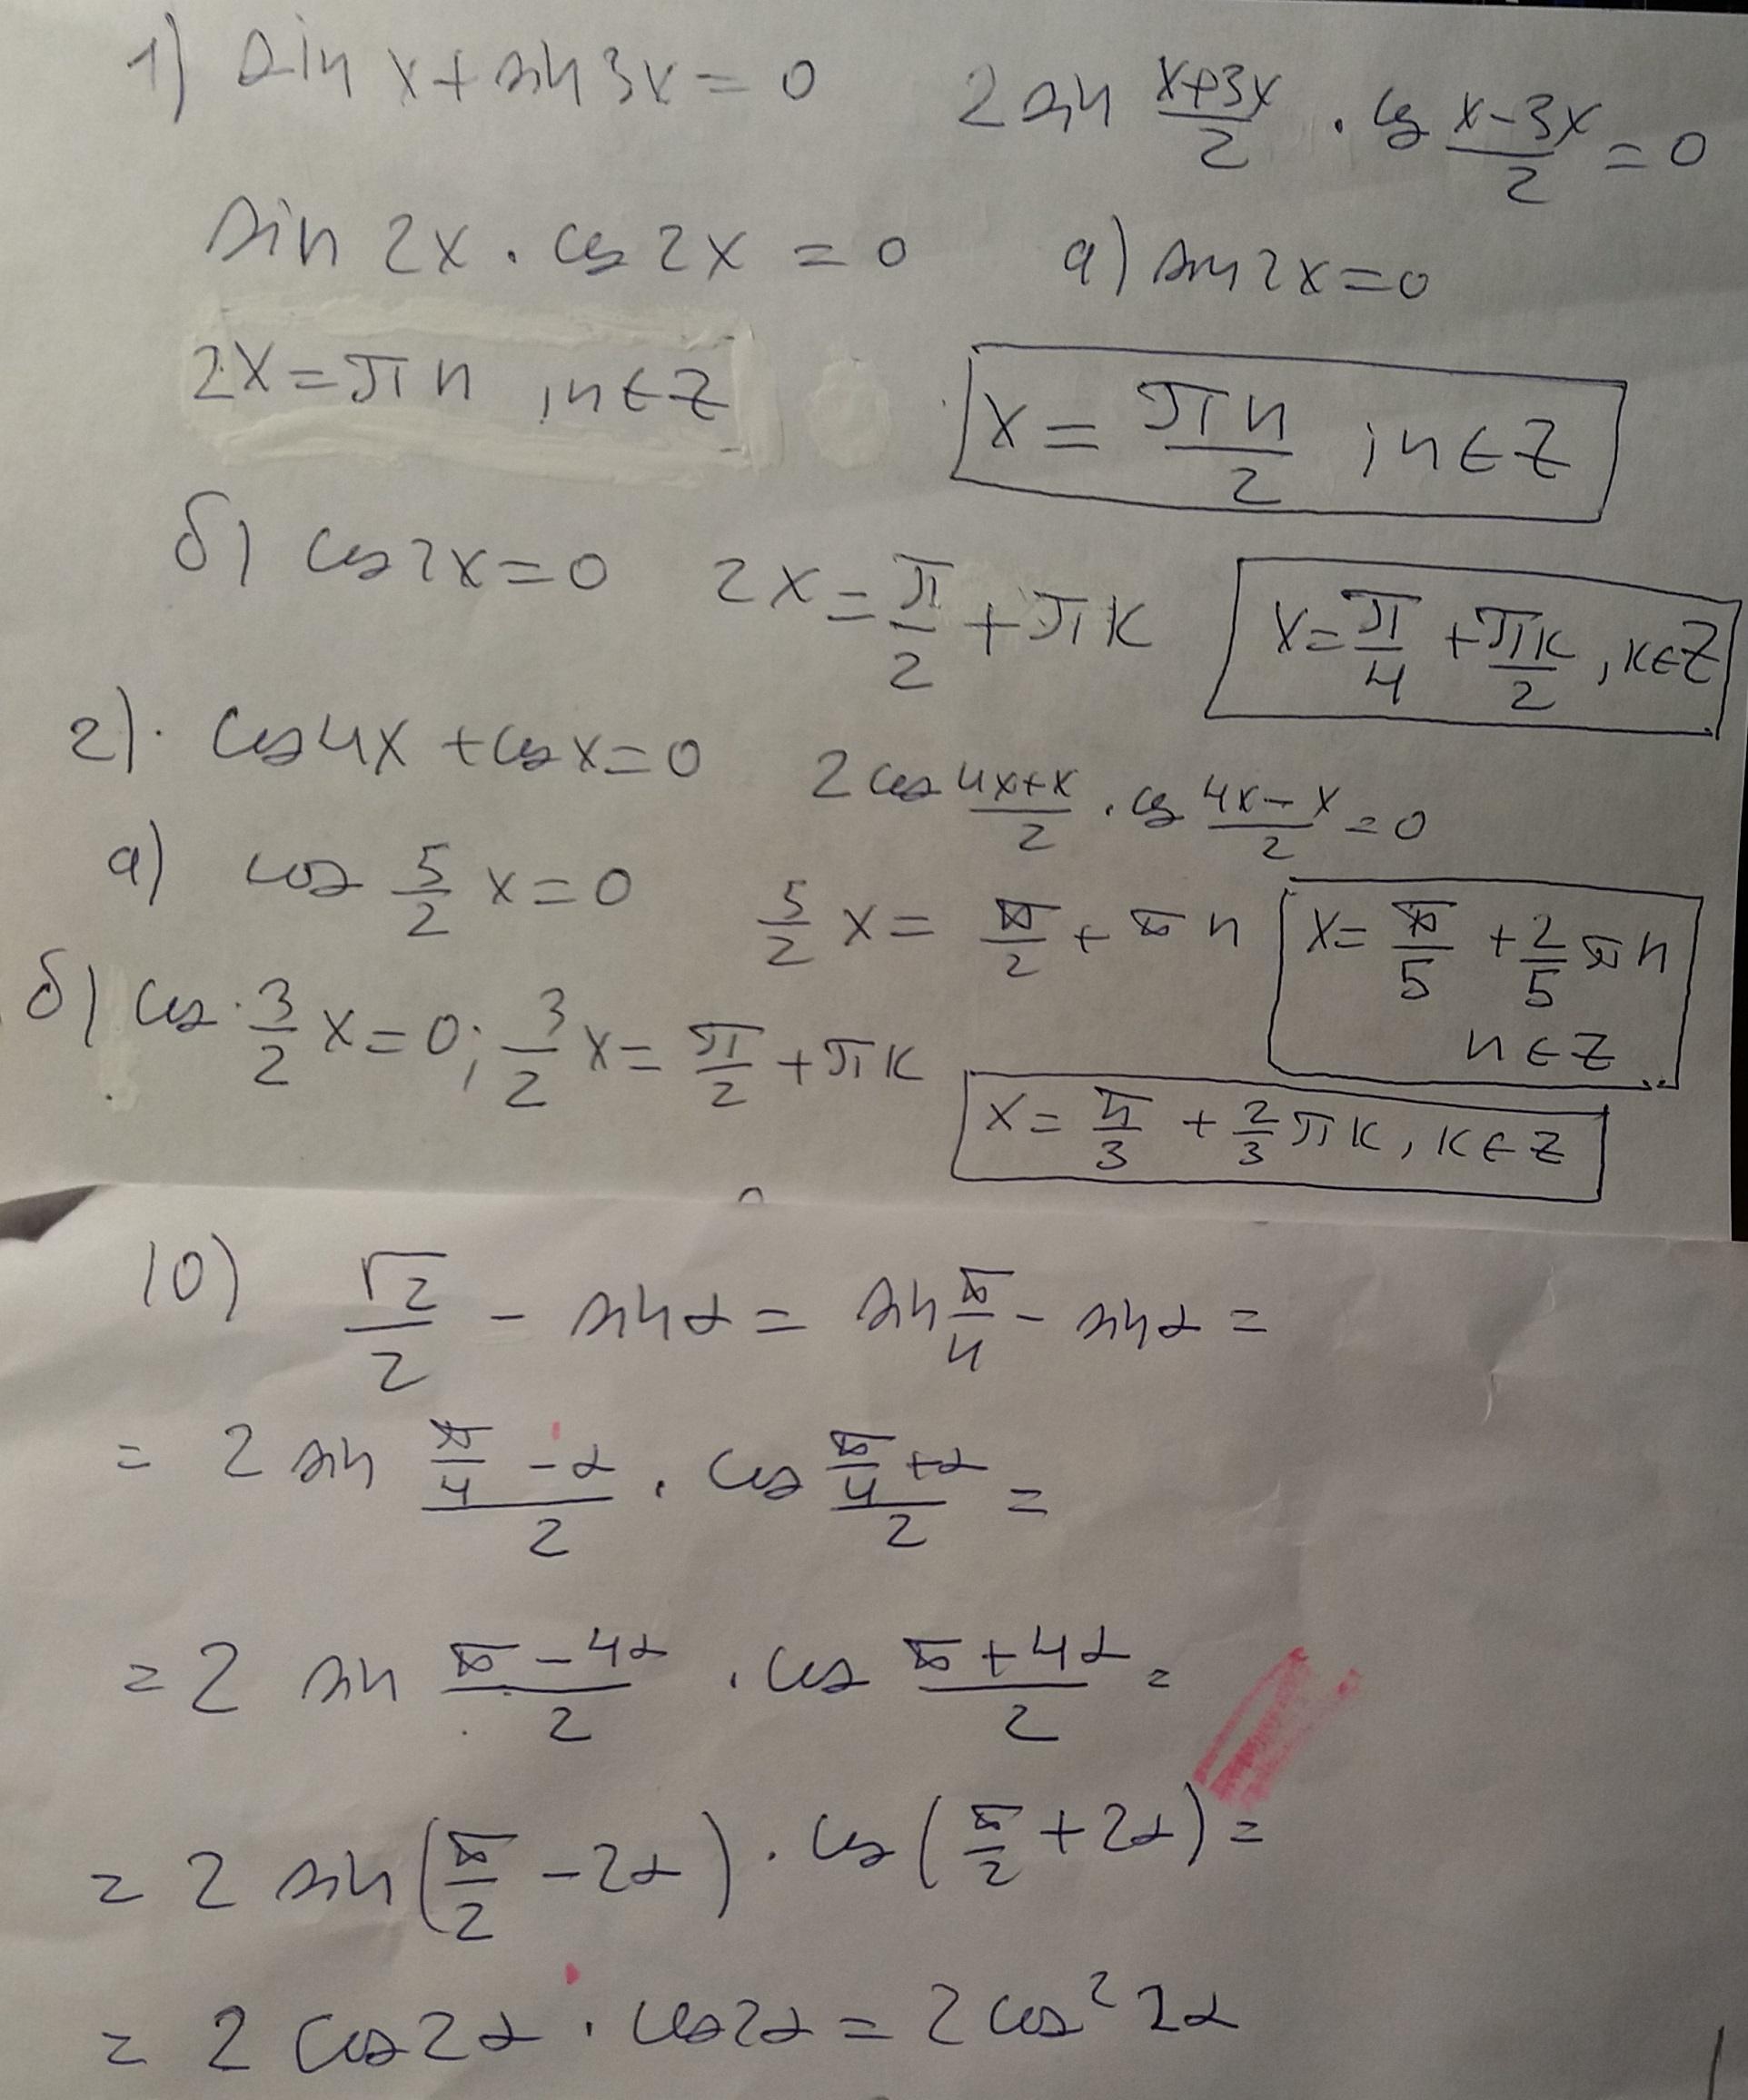 1) sin x + sin 3x = 0   2 sin (x+3x)/2 · cos (x-3x)/2 = 0
sin 2x · cos 2x = 0   a) sin 2x = 0
2x = πn , n∈Z   x = πn/2 ; n∈Z
б) cos 2x = 0   2x = π/2 + πk   x = π/4 + πk/2 , k∈Z
2). cos 4x + cos x = 0   2 cos (4x+x)/2 · cos (4x-x)/2 = 0
a) cos 5/2 x = 0   5/2 x = π/2 + πn   x = π/5 + 2/5 πn n∈Z
б) cos 3/2 x = 0; 3/2 x = π/2 + πk   x = π/3 + 2/3 πk, k∈Z
10) √2/2 - sin α = sin π/4 - sin α =
= 2 sin (π/4 - α)/2 · cos (π/4 + α)/2 =
= 2 sin (π - 4α)/2 · cos (π + 4α)/2 =
= 2 sin (π/2 - 2α) · cos (π/2 + 2α) =
= 2 cos 2α · cos 2α = 2 cos² 2α